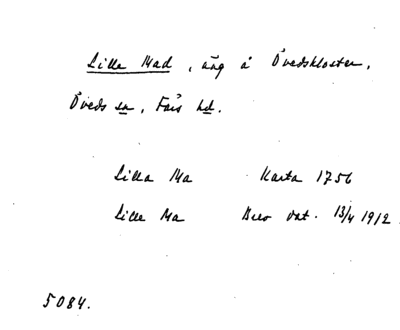 Lille Mad, äng å Övedskloster,
Öveds sn, Färs hd.
Lilla Ma Karta 1756
Lille Ma Brev dat. 13/4 1912
5084.